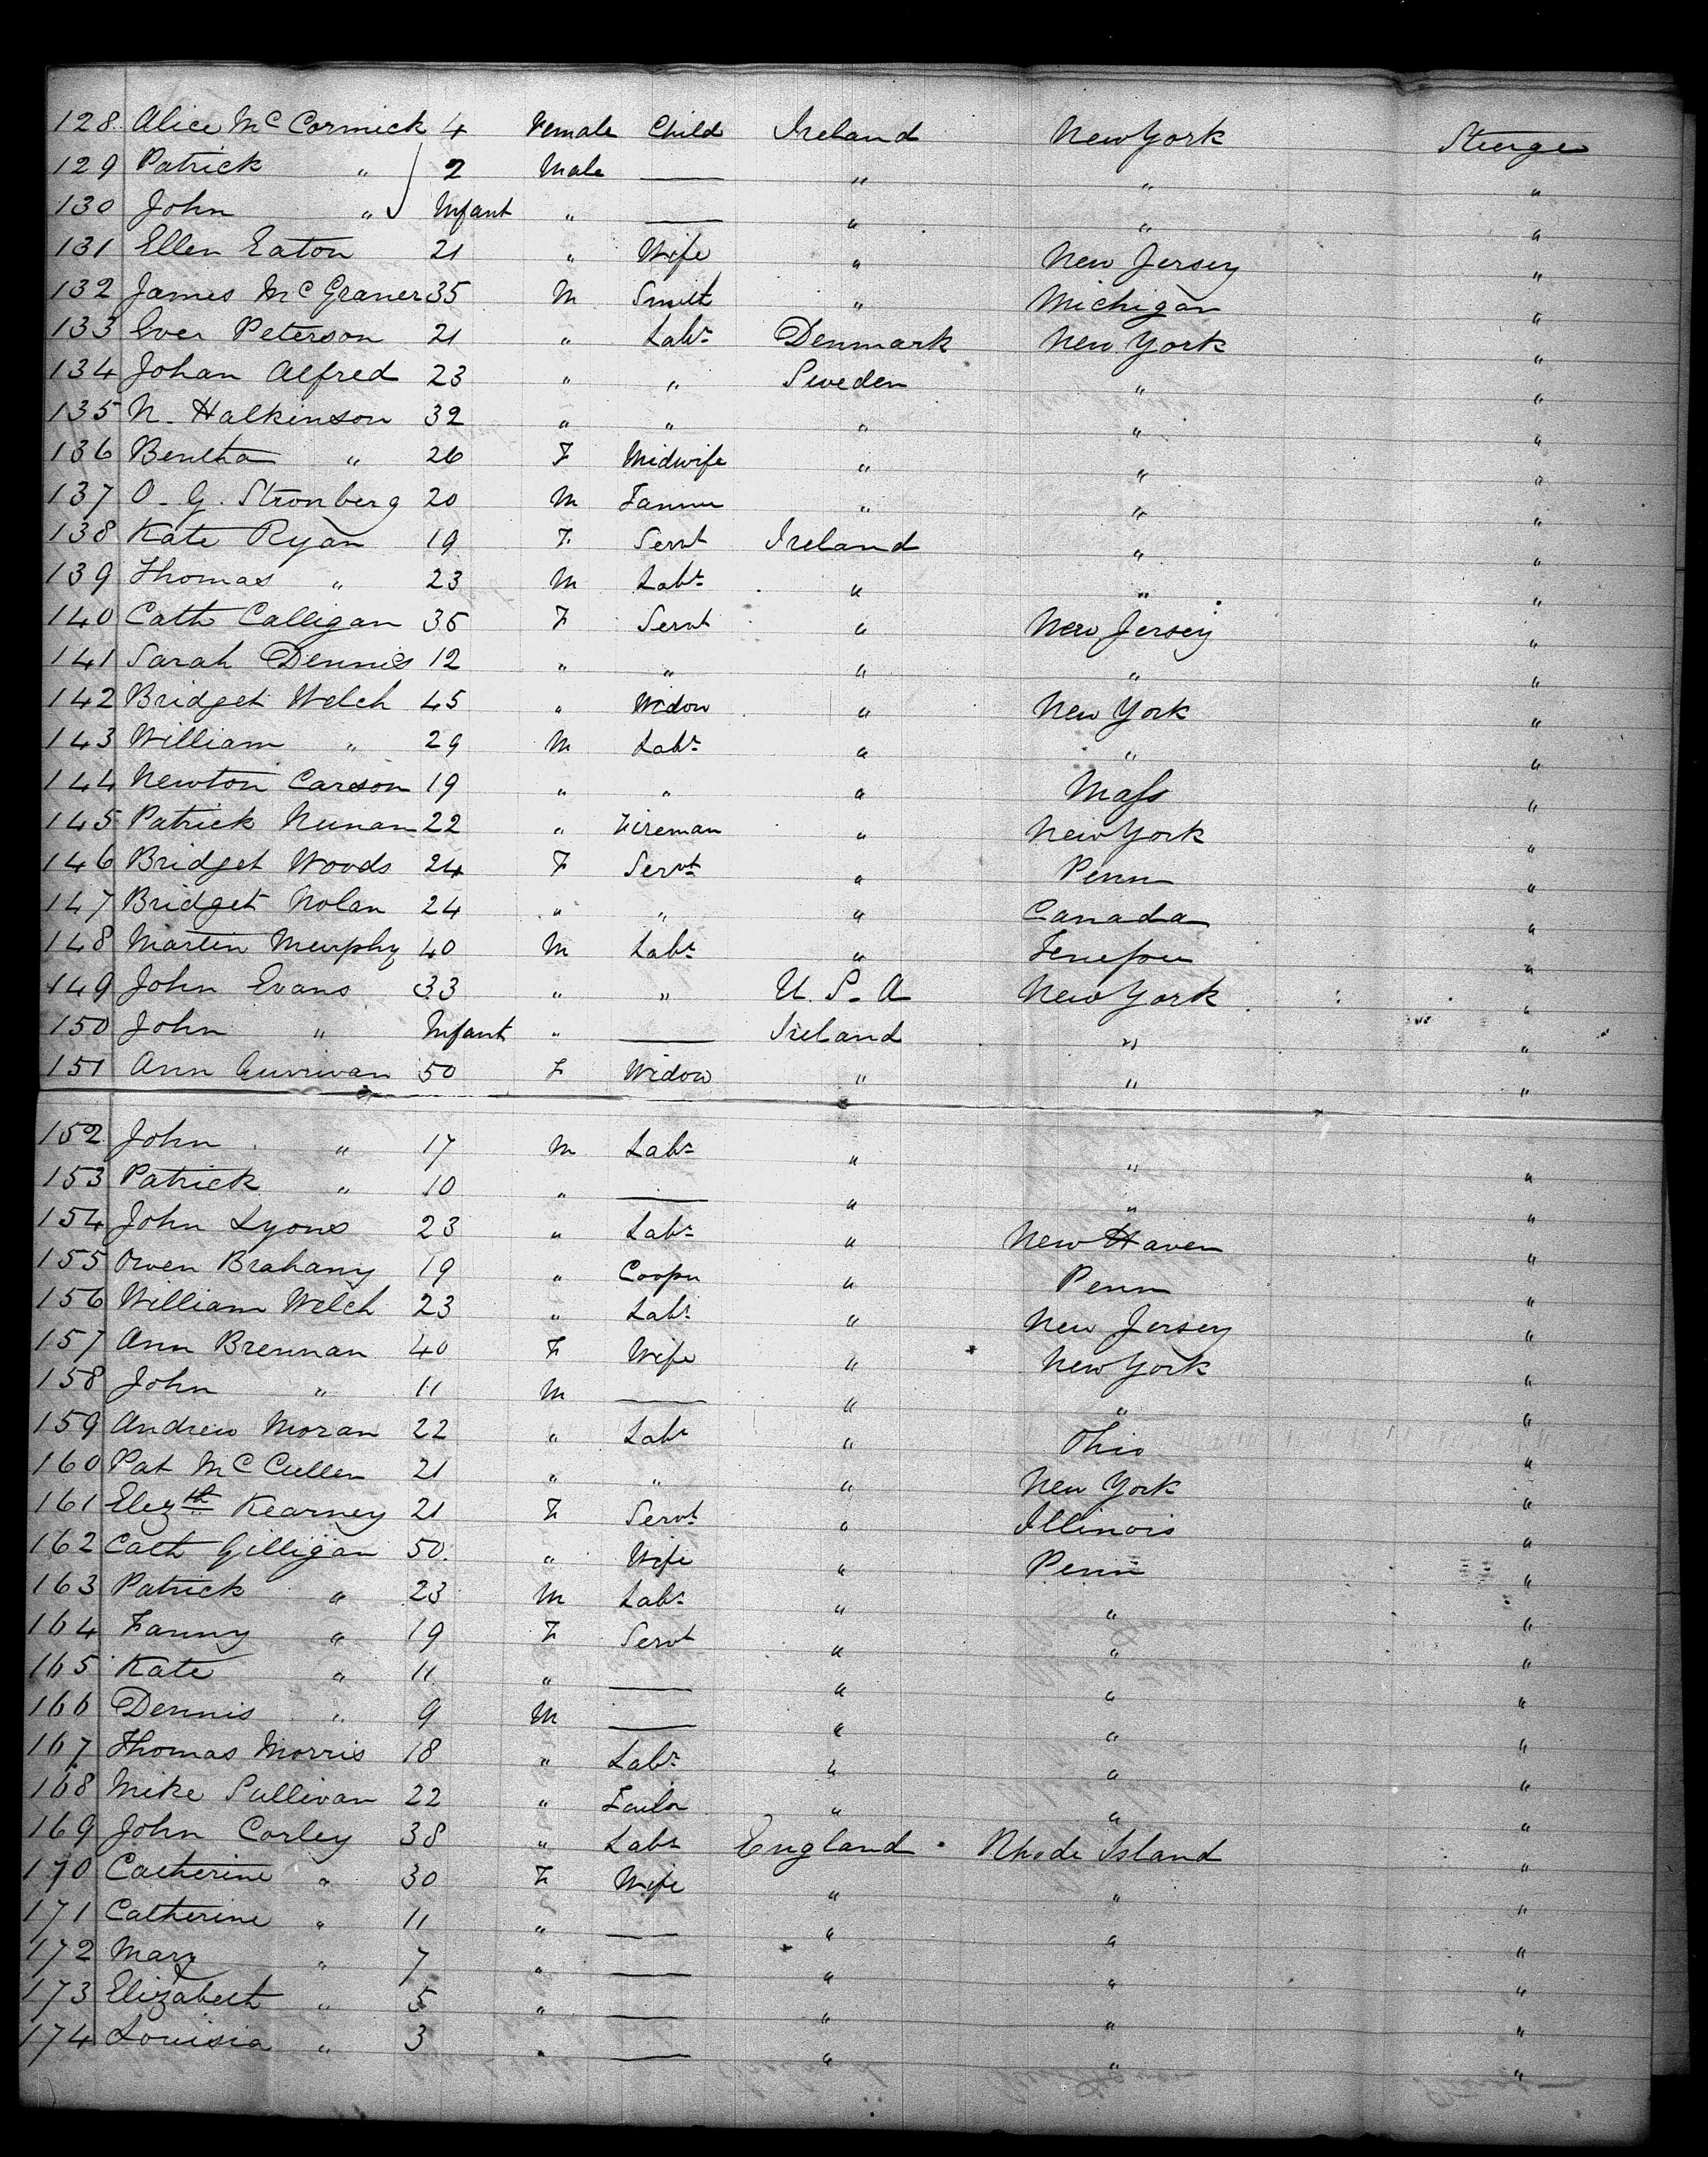 128 Alice McCormick 4 Female Child Ireland New York Steerage
129 Patrick " 2 Male — " " "
130 John " Infant " — " " "
131 Ellen Eaton 21 " Wife " New Jersey "
132 James McGraner 35 M Smith " Michigan "
133 Iver Peterson 21 " Labr Denmark New York "
134 Johan Alfred 23 " " Sweden " "
135 N. Halkinson 32 " " " " "
136 Bentha " 26 F Midwife " " "
137 O. G. Stronberg 20 M Farmer " " "
138 Kate Ryan 19 F. Servt Ireland " "
139 Thomas " 23 M Labr " " "
140 Cath Calligan 36 F Servt " New Jersey "
141 Sarah Dennis 12 " " " " "
142 Bridget Welch 45 " Widow " New York "
143 William " 29 M Labr " " "
144 Newton Carson 19 " " " Mass "
145 Patrick Nunan 22 " Fireman " New York "
146 Bridget Woods 24 F Servt " Penn "
147 Bridget Nolan 24 " " " Canada "
148 Martin Murphy 40 M Labr " "
149 John Evans 33 " " U. S. A New York "
150 John " Infant " — Ireland " "
151 Ann 50 F Widow " " "
152 John " 17 M Labr " " "
153 Patrick " 10 " — " " "
154 John Lyons 23 " Labr " New Haven "
155 Owen Brahany 19 " Cooper " Penn "
156 William Welch 23 " Labr " New Jersey "
157 Ann Brennan 40 F Wife " New York "
158 John " 11 M — " " "
159 Andrew Moran 22 " Labr " Ohio "
160 Pat McCullen 21 " " " New York "
161 Elizth Kearney 21 F Servt " Illinois "
162 Cath Gilligan 50 " Wife " Penn "
163 Patrick " 23 M Labr " " "
164 Fanny " 19 F Servt " " "
165 Kate " 11 " — " " "
166 Dennis " 9 M — " " "
167 Thomas Morris 18 " Labr " " "
168 Mike Sullivan 22 " Tailor " " "
169 John Corley 38 " Labr England Rhode Island "
170 Catherine " 30 F Wife " " "
171 Catherine " 11 " — " " "
172 Mary " 7 " — " " "
173 Elizabeth " 5 " — " " "
174 Louisia " 3 " — " " "